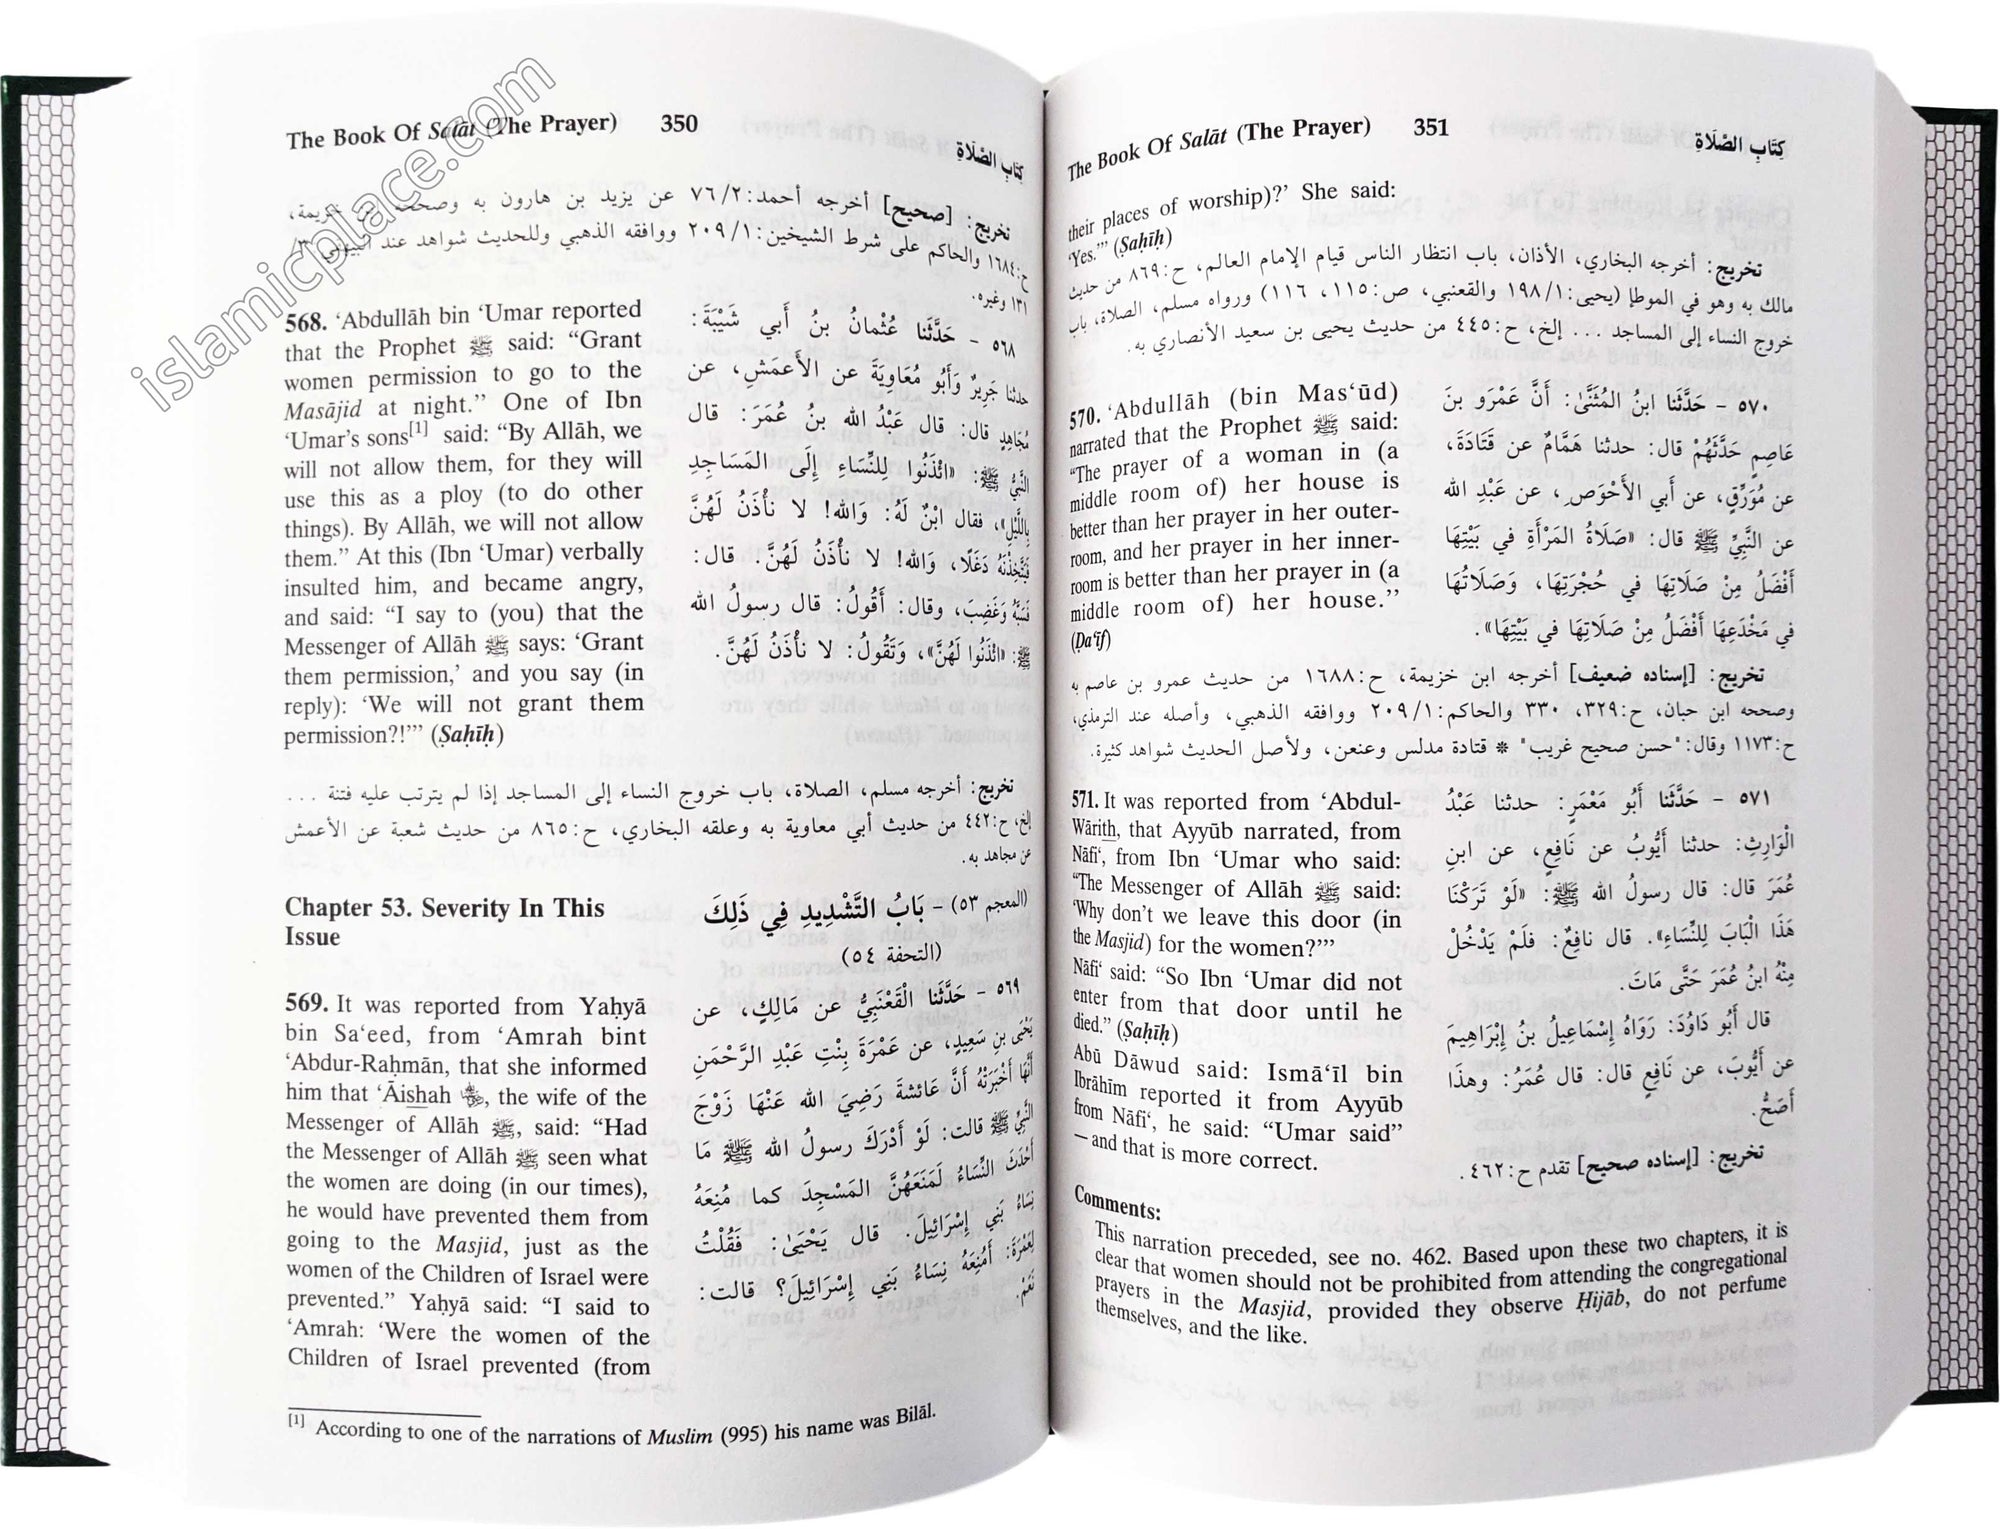 islamicplace.com
The Book Of Salāt (The Prayer) 350 كِتَابِ الصَّلَاةِ
تخريج: [صحيح] أخرجه أحمد: ٧٦/٢ عن يزيد بن هارون به وصححه خزيمة،
ح:١٦٨٤ والحاكم على شرط الشيخين: ٢٠٩/١ ووافقه الذهبي وللحديث شواهد عند
١٣١ وغيره.
568. ‘Abdullāh bin ‘Umar reported
that the Prophet ﷺ said: “Grant
women permission to go to the
Masājid at night.” One of Ibn
‘Umar’s sons[1] said: “By Allāh, we
will not allow them, for they will
use this as a ploy (to do other
things). By Allāh, we will not allow
them.” At this (Ibn ‘Umar) verbally
insulted him, and became angry,
and said: “I say to (you) that the
Messenger of Allāh ﷺ says: ‘Grant
them permission,’ and you say (in
reply): ‘We will not grant them
permission?!’” (Ṣaḥīḥ)
٥٦٨ - حَدَّثَنا عُثْمانُ بنُ أَبي شَيْبَةَ:
حدثنا جَرِيرٌ وَأَبُو مُعَاوِيَةَ عن الأَعمَشِ، عن
مُجَاهِدٍ قال: قال عَبْدُ الله بنُ عُمَرَ: قال
النَّبِيُّ ﷺ: «ائْذَنُوا لِلنِّسَاءِ إِلَى المَسَاجِدِ
بِاللَّيْلِ»، فقال ابْنٌ لَهُ: وَالله! لا نأْذَنُ لَهُنَّ
فَيَتَّخِذْنَهُ دَغَلًا، وَالله! لا نأْذَنُ لَهُنَّ. قال:
فَسَبَّهُ وَغَضِبَ، وقال: أَقُولُ: قال رسولُ الله
ﷺ: «ائْذَنُوا لَهُنَّ»، وَتَقُولُ: لا نأْذَنُ لَهُنَّ.
تخريج: أخرجه مسلم، الصلاة، باب خروج النساء إلى المساجد إذا لم يترتب عليه فتنة ...
إلخ، ح:٤٤٢ من حديث أبي معاوية به وعلقه البخاري، ح:٨٦٥ من حديث شعبة عن الأعمش
عن مجاهد به.
Chapter 53. Severity In This
Issue
(المعجم ٥٣) - بَابُ التَّشْدِيدِ فِي ذَلِكَ
(التحفة ٥٤)
569. It was reported from Yaḥyā
bin Sa‘eed, from ‘Amrah bint
‘Abdur-Raḥmān, that she informed
him that ‘Āishah, the wife of the
Messenger of Allāh ﷺ, said: “Had
the Messenger of Allāh ﷺ seen what
the women are doing (in our times),
he would have prevented them from
going to the Masjid, just as the
women of the Children of Israel were
prevented.” Yaḥyā said: “I said to
‘Amrah: ‘Were the women of the
Children of Israel prevented (from
٥٦٩ - حَدَّثَنا الْقَعْنَبِيُّ عن مَالِكٍ، عن
يَحْيَى بنِ سَعِيدٍ، عن عَمْرَةَ بِنْتِ عَبْدِ الرَّحْمَنِ
أَنَّهَا أَخْبَرَتْهُ أَنَّ عَائشةَ رَضِيَ الله عَنْهَا زَوْجَ
النَّبيِّ ﷺ قالت: لَوْ أَدْرَكَ رسولُ الله ﷺ مَا
أَحْدَثَ النِّسَاءُ لَمَنَعَهُنَّ المَسْجِدَ كما مُنِعَهُ
نِسَاءُ بَنِي إِسْرَائِيلَ. قال يَحْيَىٰ: فَقُلْتُ
لِعَمْرَةَ: أَمُنِعَهُ نِسَاءُ بَنِي إِسْرَائِيلَ؟ قالت:
نَعَمْ.
[1] According to one of the narrations of Muslim (995) his name was Bilāl.
The Book Of Salāt (The Prayer) 351 كِتَابِ الصَّلَاةِ
their places of worship)?’ She said:
‘Yes.’” (Ṣaḥīḥ)
تخريج: أخرجه البخاري، الأذان، باب انتظار الناس قيام الإمام العالم، ح:٨٦٩ من حديث
مالك به وهو في الموطإ (يحيى: ١٩٨/١ والقعنبي، ص: ١١٥، ١١٦) ورواه مسلم، الصلاة، باب
خروج النساء إلى المساجد ... إلخ، ح:٤٤٥ من حديث يحيى بن سعيد الأنصاري به.
570. ‘Abdullāh (bin Mas‘ūd)
narrated that the Prophet ﷺ said:
“The prayer of a woman in (a
middle room of) her house is
better than her prayer in her outer-
room, and her prayer in her inner-
room is better than her prayer in (a
middle room of) her house.”
(Ḍa‘īf)
٥٧٠ - حَدَّثَنا ابنُ المُثَنَّىٰ: أَنَّ عَمْرَو بنَ
عَاصِمٍ حَدَّثَهُمْ قال: حدثنا هَمَّامٌ عن قَتَادَةَ،
عن مُوَرِّقٍ، عن أَبي الأَحْوَصِ، عن عَبْدِ الله
عن النَّبِيِّ ﷺ قال: «صَلَاةُ المَرْأَةِ في بَيْتِهَا
أَفْضَلُ مِنْ صَلَاتِهَا في حُجْرَتِهَا، وَصَلَاتُهَا
في مَخْدَعِهَا أَفْضَلُ مِنْ صَلَاتِهَا في بَيْتِهَا».
تخريج: [إسناده ضعيف] أخرجه ابن خزيمة، ح:١٦٨٨ من حديث عمرو بن عاصم به
وصححه ابن حبان، ح:٣٢٩، ٣٣٠ والحاكم: ٢٠٩/١ ووافقه الذهبي، وأصله عند الترمذي،
ح:١١٧٣ وقال: "حسن صحيح غريب" * قتادة مدلس وعنعن، ولأصل الحديث شواهد كثيرة.
571. It was reported from ‘Abdul-
Wārith, that Ayyūb narrated, from
Nāfi‘, from Ibn ‘Umar who said:
“The Messenger of Allāh ﷺ said:
‘Why don’t we leave this door (in
the Masjid) for the women?’”
Nāfi‘ said: “So Ibn ‘Umar did not
enter from that door until he
died.” (Ṣaḥīḥ)
Abū Dāwud said: Ismā‘īl bin
Ibrāhīm reported it from Ayyūb
from Nāfi‘, he said: “Umar said”
— and that is more correct.
٥٧١ - حَدَّثَنا أَبُو مَعْمَرٍ: حدثنا عَبْدُ
الْوَارِثِ: حدثنا أَيُّوبُ عن نَافِعٍ، عن ابنِ
عُمَرَ قال: قال رسولُ الله ﷺ: «لَوْ تَرَكْنَا
هَذَا الْبَابَ لِلنِّسَاءِ». قال نافِعٌ: فلَمْ يَدْخُلْ
مِنْهُ ابنُ عُمَرَ حَتَّى مَاتَ.
قال أَبُو دَاوُدَ: رَوَاهُ إِسْمَاعِيلُ بنُ إِبْرَاهِيمَ
عن أَيُّوبَ، عن نَافِعٍ قال: قال عُمَرُ: وهذَا
أَصَحُّ.
تخريج: [إسناده صحيح] تقدم ح:٤٦٢.
Comments:
This narration preceded, see no. 462. Based upon these two chapters, it is
clear that women should not be prohibited from attending the congregational
prayers in the Masjid, provided they observe Ḥijāb, do not perfume
themselves, and the like.